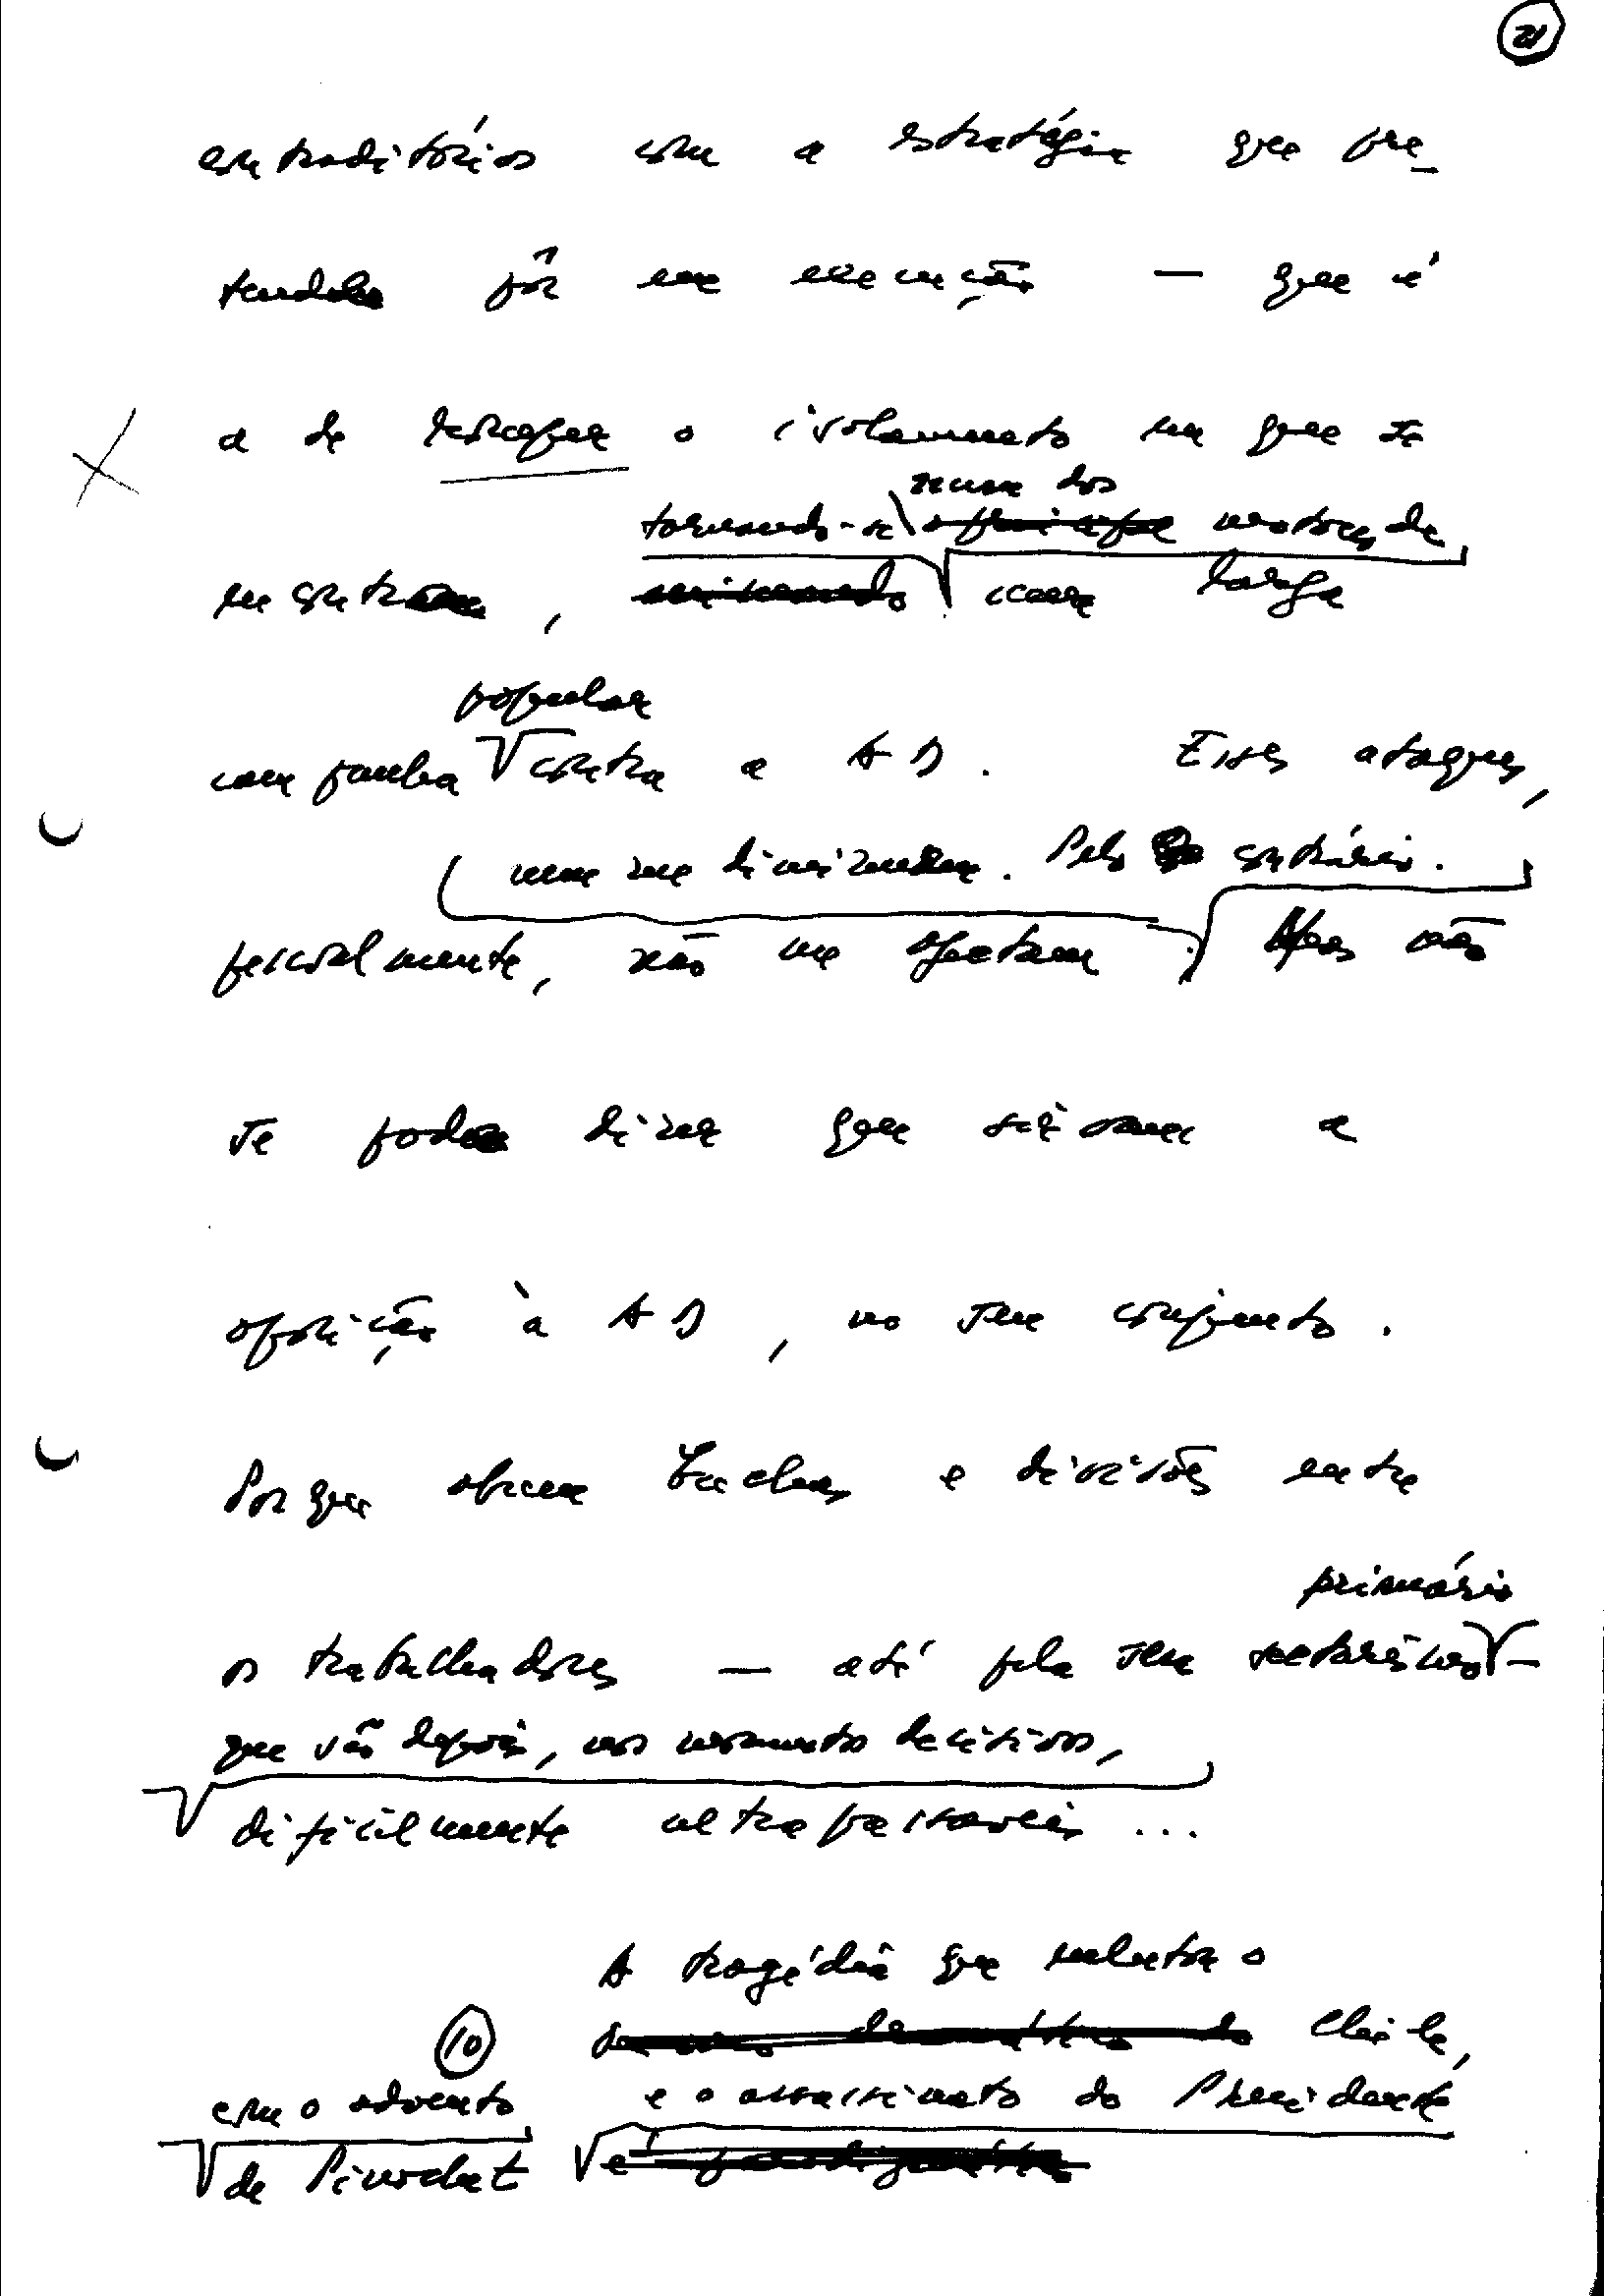 21
contraditórios com a estratégia que pre-
tende pôr em execução — que é
a de escapar o isolamento em que se
tornando-se num dos motores de
encontra, uma larga
popular
campanha contra a AD. Esses ataques,
nem me diminuem. Pelo contrário.
pessoalmente, não me afectam. Mas não
se pode dizer que sirvam a
oposição à AD, no seu conjunto.
Porque abrem brechas e divisões entre
primário
os trabalhadores — até pelo seu sectarismo —
que são depois, nos momentos decisivos,
dificilmente ultrapassáveis...
A tragédia que enlutou o
10 Chile,
com o advento e o assassinato do Presidente
de Pinochet